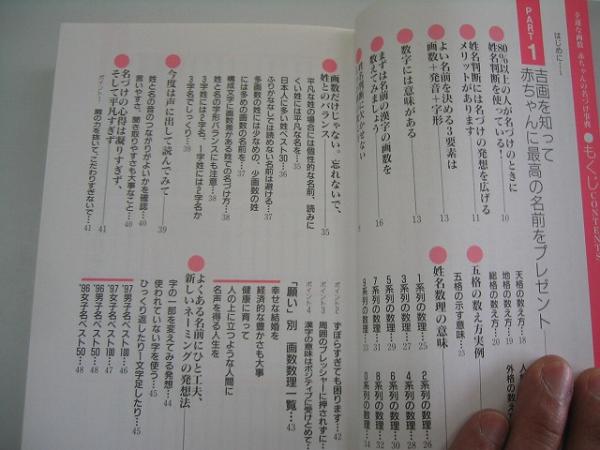 幸運な画数 赤ちゃんのお名づけ事典 ●もくじCONTENTS
はじめに…1
PART 1
吉画を知って
赤ちゃんに最高の名前をプレゼント
80%以上の人が名づけのときに
姓名判断を使っている! 10
姓名判断には名づけの発想を広げる
メリットがあります 11
よい名前を決める3要素は
画数+発音+字形 13
数字には意味がある 13
まずは名前の漢字の画数を
数えてみましょう 16
天格の数え方…18
地格の数え方…19
総格の数え方…20
外格の数え
五格の数え方実例
五格の示す意味…23
姓名数理の意味
1系列の数理…25
3系列の数理…27
5系列の数理…29
7系列の数理…31
9系列の数理…33
2系列の数理…26
4系列の数理…28
6系列の数理…30
8系列の数理…32
0系列の数理…34
画数だけじゃない。忘れないで、
姓とのバランス 35
平凡な姓の場合には個性的な名前、読みに
くい姓には平凡な名を…35
日本人に多い姓ベスト30…36
ふりがななしでは読めない名前は避ける…37
多画数の姓には少なめの、少画数の姓
には多めの画数の名前を…37
構成文字に画数差がある姓での名づけ方…38
姓と名の字形バランスにも注意…38
3字姓には2字名、1字姓には2字名か
3字名でしっくり…38
今度は声に出して読んでみて 39
姓と名の音のつながりがよいかを確認…40
言いやすさ、聞き取りやすさも大事なこと…40
名づけの心得は凝りすぎず、
そして平凡すぎず 41
ポイント1 肩の力を抜いて"こだわりすぎないで"…41
ポイント2 ずぼらすぎても困ります…42
ポイント3 周囲のプレッシャーに押されずに…
ポイント4 漢字の意味はポジティブに受けとめて…
「願い」別 画数数理一覧…43
幸せな結婚を
経済的な豊かさも大事
健康に育って
人の上に立つような人間に
名声を得る人生を
よくある名前にひと工夫、
新しいネーミングの発想法
字の一部を変えてみる発想…44
使われていない字を使う…45
ひっくり返したり一文字足したり…45
'97男子名ベスト100…46
'97女子名ベスト100…47
'96男子名ベスト50…48
'96女子名ベスト50…48